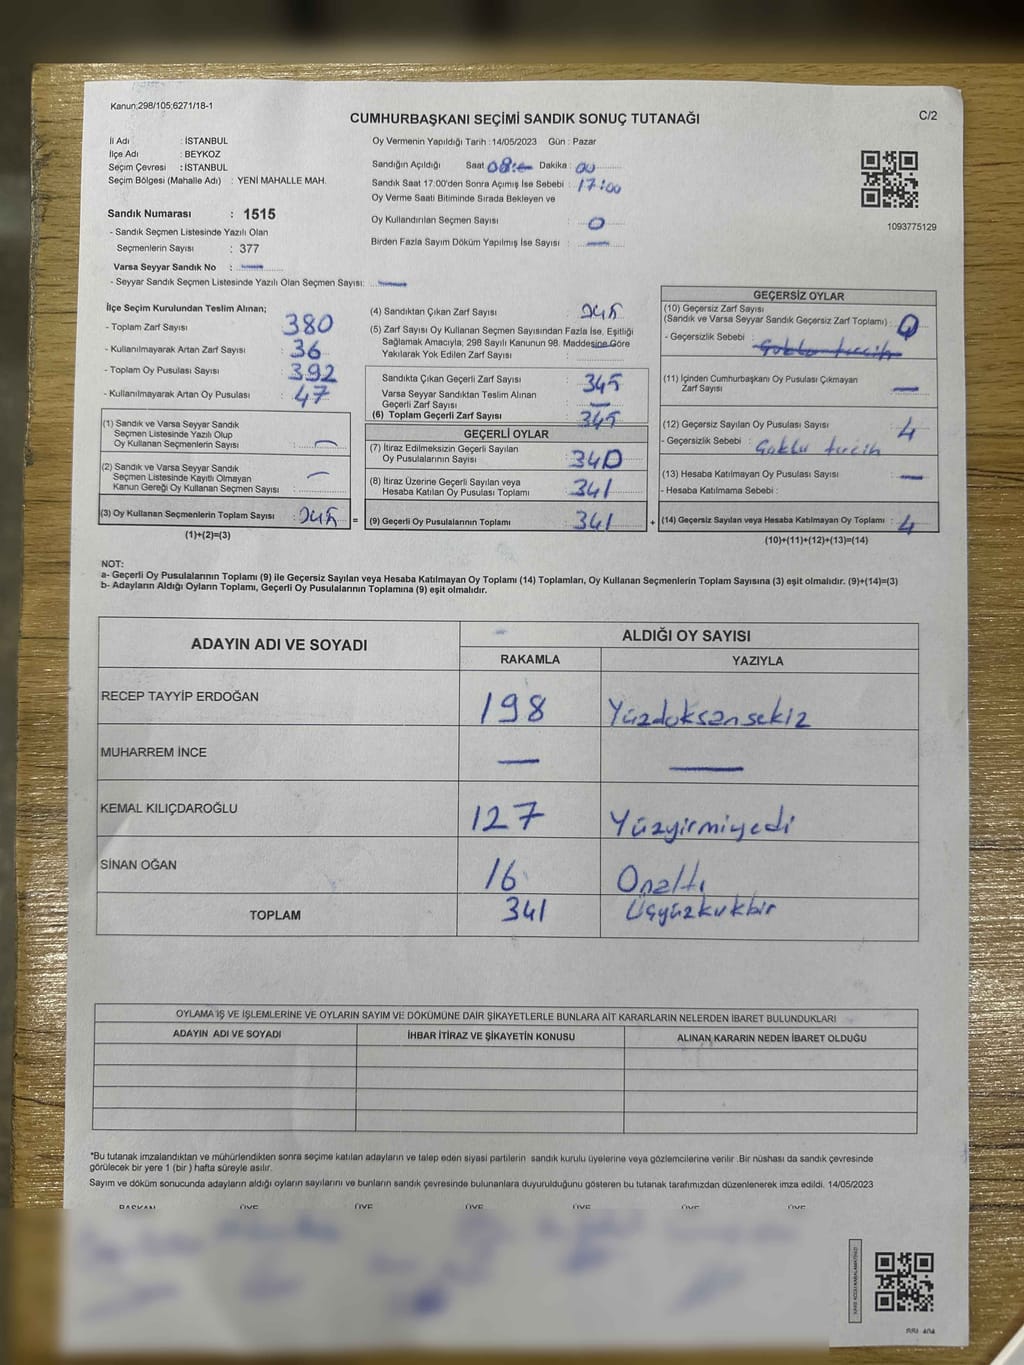 Kanun:298/105;6271/18-1
CUMHURBAŞKANI SEÇİMİ SANDIK SONUÇ TUTANAĞI
C/2
İl Adı : İSTANBUL
İlçe Adı : BEYKOZ
Seçim Çevresi : İSTANBUL
Seçim Bölgesi (Mahalle Adı) : YENİ MAHALLE MAH.
Sandık Numarası : 1515
- Sandık Seçmen Listesinde Yazılı Olan
Seçmenlerin Sayısı : 377
Varsa Seyyar Sandık No : —
- Seyyar Sandık Seçmen Listesinde Yazılı Olan Seçmen Sayısı: —
Oy Vermenin Yapıldığı Tarih : 14/05/2023 Gün : Pazar
Sandığın Açıldığı Saat 08 Dakika : 00
Sandık Saat 17:00'den Sonra Açımış İse Sebebi : 17:00
Oy Verme Saati Bitiminde Sırada Bekleyen ve
Oy Kullandırılan Seçmen Sayısı : 0
Birden Fazla Sayım Döküm Yapılmış İse Sayısı : —
1093775129
İlçe Seçim Kurulundan Teslim Alınan;
- Toplam Zarf Sayısı 380
- Kullanılmayarak Artan Zarf Sayısı : 36
- Toplam Oy Pusulası Sayısı : 392
- Kullanılmayarak Artan Oy Pusulası : 47
(1) Sandık ve Varsa Seyyar Sandık
Seçmen Listesinde Yazılı Olup
Oy Kullanan Seçmenlerin Sayısı : —
(2) Sandık ve Varsa Seyyar Sandık
Seçmen Listesinde Kayıtlı Olmayan
Kanun Gereği Oy Kullanan Seçmen Sayısı : —
(3) Oy Kullanan Seçmenlerin Toplam Sayısı : 345 =
(1)+(2)=(3)
(4) Sandıktan Çıkan Zarf Sayısı : 345
(5) Zarf Sayısı Oy Kullanan Seçmen Sayısından Fazla İse, Eşitliği
Sağlamak Amacıyla, 298 Sayılı Kanunun 98. Maddesine Göre
Yakılarak Yok Edilen Zarf Sayısı :
Sandıkta Çıkan Geçerli Zarf Sayısı : 345
Varsa Seyyar Sandıktan Teslim Alınan
Geçerli Zarf Sayısı : —
(6) Toplam Geçerli Zarf Sayısı : 345
GEÇERLİ OYLAR
(7) İtiraz Edilmeksizin Geçerli Sayılan
Oy Pusulalarının Sayısı : 340
(8) İtiraz Üzerine Geçerli Sayılan veya
Hesaba Katılan Oy Pusulası Toplamı : 341
(9) Geçerli Oy Pusulalarının Toplamı : 341 +
GEÇERSİZ OYLAR
(10) Geçersiz Zarf Sayısı
(Sandık ve Varsa Seyyar Sandık Geçersiz Zarf Toplamı) : 0
- Geçersizlik Sebebi :
(11) İçinden Cumhurbaşkanı Oy Pusulası Çıkmayan
Zarf Sayısı : —
(12) Geçersiz Sayılan Oy Pusulası Sayısı : 4
- Geçersizlik Sebebi : Çoklu tercih
(13) Hesaba Katılmayan Oy Pusulası Sayısı : —
- Hesaba Katılmama Sebebi :
(14) Geçersiz Sayılan veya Hesaba Katılmayan Oy Toplamı : 4
(10)+(11)+(12)+(13)=(14)
NOT:
a- Geçerli Oy Pusulalarının Toplamı (9) ile Geçersiz Sayılan veya Hesaba Katılmayan Oy Toplamı (14) Toplamları, Oy Kullanan Seçmenlerin Toplam Sayısına (3) eşit olmalıdır. (9)+(14)=(3)
b- Adayların Aldığı Oyların Toplamı, Geçerli Oy Pusulalarının Toplamına (9) eşit olmalıdır.
ADAYIN ADI VE SOYADI
ALDIĞI OY SAYISI
RAKAMLA YAZIYLA
RECEP TAYYİP ERDOĞAN 198 Yüzdoksansekiz
MUHARREM İNCE — —
KEMAL KILIÇDAROĞLU 127 Yüzyirmiyedi
SİNAN OĞAN 16 Onaltı
TOPLAM 341 Üçyüzkırkbir
OYLAMA İŞ VE İŞLEMLERİNE VE OYLARIN SAYIM VE DÖKÜMÜNE DAİR ŞİKAYETLERLE BUNLARA AİT KARARLARIN NELERDEN İBARET BULUNDUKLARI
ADAYIN ADI VE SOYADI İHBAR İTİRAZ VE ŞİKAYETİN KONUSU ALINAN KARARIN NEDEN İBARET OLDUĞU
*Bu tutanak imzalandıktan ve mühürlendikten sonra seçime katılan adayların ve talep eden siyasi partilerin sandık kurulu üyelerine veya gözlemcilerine verilir .Bir nüshası da sandık çevresinde
görülecek bir yere 1 (bir ) hafta süreyle asılır.
Sayım ve döküm sonucunda adayların aldığı oyların sayılarını ve bunların sandık çevresinde bulunanlara duyurulduğunu gösteren bu tutanak tarafımızdan düzenlenerek imza edildi. 14/05/2023
BAŞKAN ÜYE ÜYE ÜYE ÜYE ÜYE ÜYE